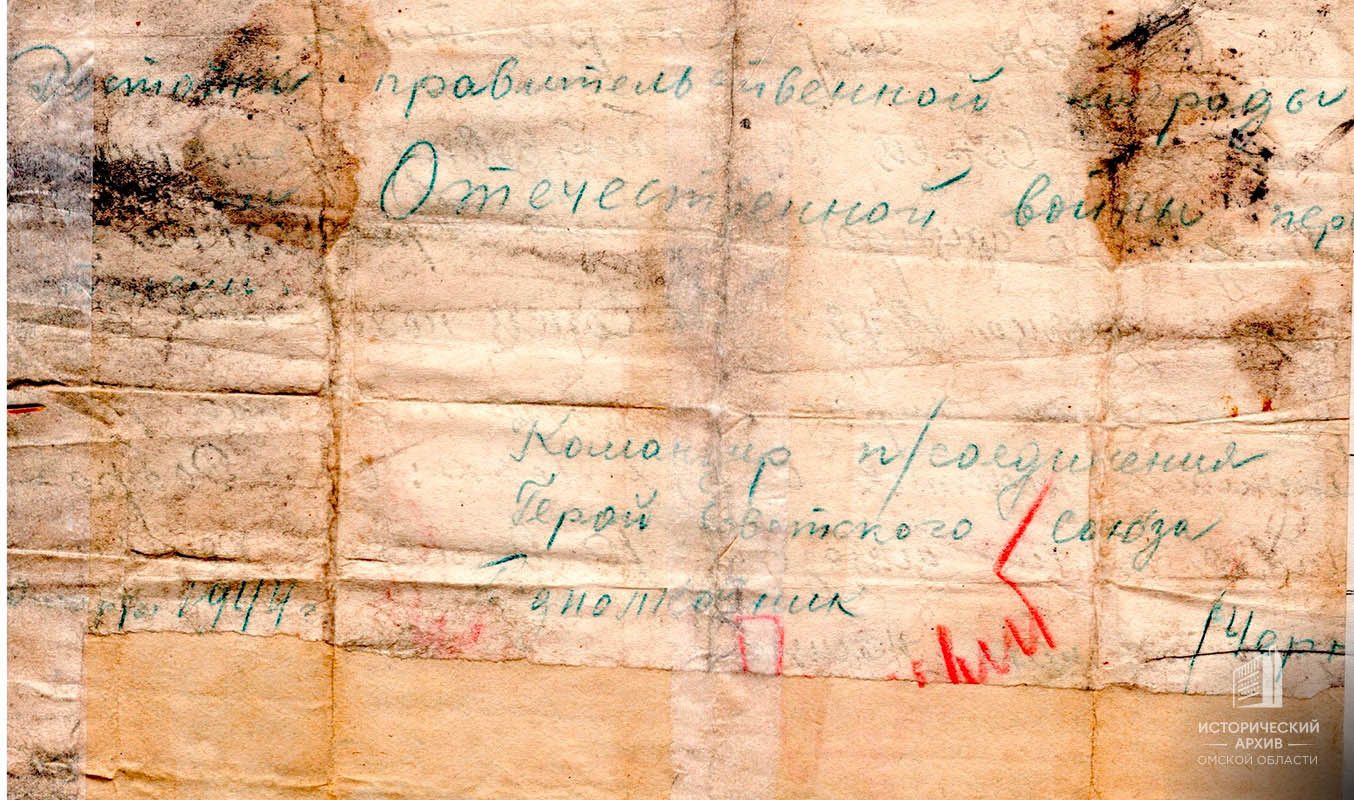 Достойна правительственной награды
Отечественной войны пер
Командир п/соединения
Герой Советского Союза
1944 г.
/Черн
ИСТОРИЧЕСКИЙ
АРХИВ
ОМСКОЙ ОБЛАСТИ